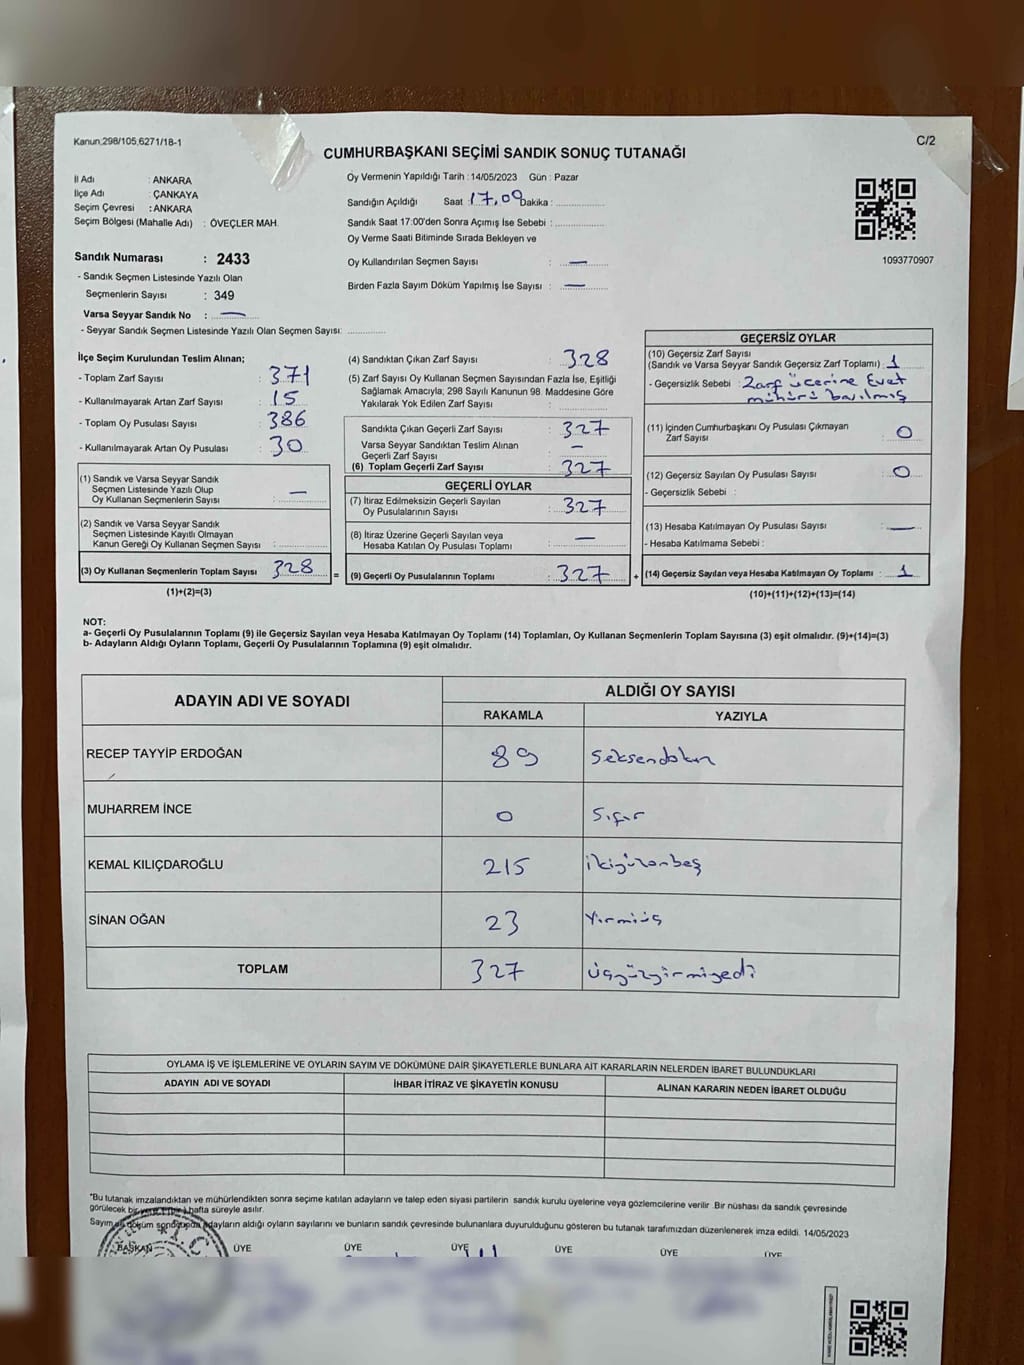 Kanun;298/105,6271/18-1
C/2
CUMHURBAŞKANI SEÇİMİ SANDIK SONUÇ TUTANAĞI
İl Adı : ANKARA
İlçe Adı : ÇANKAYA
Seçim Çevresi : ANKARA
Seçim Bölgesi (Mahalle Adı) : ÖVEÇLER MAH.
Sandık Numarası : 2433
- Sandık Seçmen Listesinde Yazılı Olan
Seçmenlerin Sayısı : 349
Varsa Seyyar Sandık No : —
- Seyyar Sandık Seçmen Listesinde Yazılı Olan Seçmen Sayısı: ............
Oy Vermenin Yapıldığı Tarih : 14/05/2023 Gün : Pazar
Sandığın Açıldığı Saat 17,09 Dakika : ............
Sandık Saat 17:00'den Sonra Açımış İse Sebebi : ............
Oy Verme Saati Bitiminde Sırada Bekleyen ve
Oy Kullandırılan Seçmen Sayısı : —
Birden Fazla Sayım Döküm Yapılmış İse Sayısı : —
1093770907
İlçe Seçim Kurulundan Teslim Alınan;
- Toplam Zarf Sayısı : 371
- Kullanılmayarak Artan Zarf Sayısı : 15
- Toplam Oy Pusulası Sayısı : 386
- Kullanılmayarak Artan Oy Pusulası : 30
(1) Sandık ve Varsa Seyyar Sandık
Seçmen Listesinde Yazılı Olup
Oy Kullanan Seçmenlerin Sayısı : —
(2) Sandık ve Varsa Seyyar Sandık
Seçmen Listesinde Kayıtlı Olmayan
Kanun Gereği Oy Kullanan Seçmen Sayısı : ............
(3) Oy Kullanan Seçmenlerin Toplam Sayısı 328
(1)+(2)=(3)
=
(4) Sandıktan Çıkan Zarf Sayısı : 328
(5) Zarf Sayısı Oy Kullanan Seçmen Sayısından Fazla İse, Eşitliği
Sağlamak Amacıyla; 298 Sayılı Kanunun 98. Maddesine Göre
Yakılarak Yok Edilen Zarf Sayısı : ............
Sandıkta Çıkan Geçerli Zarf Sayısı : 327
Varsa Seyyar Sandıktan Teslim Alınan
Geçerli Zarf Sayısı : —
(6) Toplam Geçerli Zarf Sayısı : 327
GEÇERLİ OYLAR
(7) İtiraz Edilmeksizin Geçerli Sayılan
Oy Pusulalarının Sayısı : 327
(8) İtiraz Üzerine Geçerli Sayılan veya
Hesaba Katılan Oy Pusulası Toplamı : —
(9) Geçerli Oy Pusulalarının Toplamı : 327
+
GEÇERSİZ OYLAR
(10) Geçersiz Zarf Sayısı
(Sandık ve Varsa Seyyar Sandık Geçersiz Zarf Toplamı) : 1
- Geçersizlik Sebebi : Zarf üzerine Evet
mührü basılmış
(11) İçinden Cumhurbaşkanı Oy Pusulası Çıkmayan
Zarf Sayısı : 0
(12) Geçersiz Sayılan Oy Pusulası Sayısı : 0
- Geçersizlik Sebebi :
(13) Hesaba Katılmayan Oy Pusulası Sayısı : —
- Hesaba Katılmama Sebebi :
(14) Geçersiz Sayılan veya Hesaba Katılmayan Oy Toplamı : 1
(10)+(11)+(12)+(13)=(14)
NOT:
a- Geçerli Oy Pusulalarının Toplamı (9) ile Geçersiz Sayılan veya Hesaba Katılmayan Oy Toplamı (14) Toplamları, Oy Kullanan Seçmenlerin Toplam Sayısına (3) eşit olmalıdır. (9)+(14)=(3)
b- Adayların Aldığı Oyların Toplamı, Geçerli Oy Pusulalarının Toplamına (9) eşit olmalıdır.
ADAYIN ADI VE SOYADI
ALDIĞI OY SAYISI
RAKAMLA YAZIYLA
RECEP TAYYİP ERDOĞAN 89 seksendokuz
MUHARREM İNCE 0 Sıfır
KEMAL KILIÇDAROĞLU 215 ikiyüzonbeş
SİNAN OĞAN 23 Yirmiüç
TOPLAM 327 üçyüzyirmiyedi
OYLAMA İŞ VE İŞLEMLERİNE VE OYLARIN SAYIM VE DÖKÜMÜNE DAİR ŞİKAYETLERLE BUNLARA AİT KARARLARIN NELERDEN İBARET BULUNDUKLARI
ADAYIN ADI VE SOYADI İHBAR İTİRAZ VE ŞİKAYETİN KONUSU ALINAN KARARIN NEDEN İBARET OLDUĞU
*Bu tutanak imzalandıktan ve mühürlendikten sonra seçime katılan adayların ve talep eden siyasi partilerin sandık kurulu üyelerine veya gözlemcilerine verilir. Bir nüshası da sandık çevresinde
görülecek bir yere 1 (bir) hafta süreyle asılır.
Sayım ve döküm sonucunda adayların aldığı oyların sayılarını ve bunların sandık çevresinde bulunanlara duyurulduğunu gösteren bu tutanak tarafımızdan düzenlenerek imza edildi. 14/05/2023
BAŞKAN ÜYE ÜYE ÜYE ÜYE ÜYE ÜYE